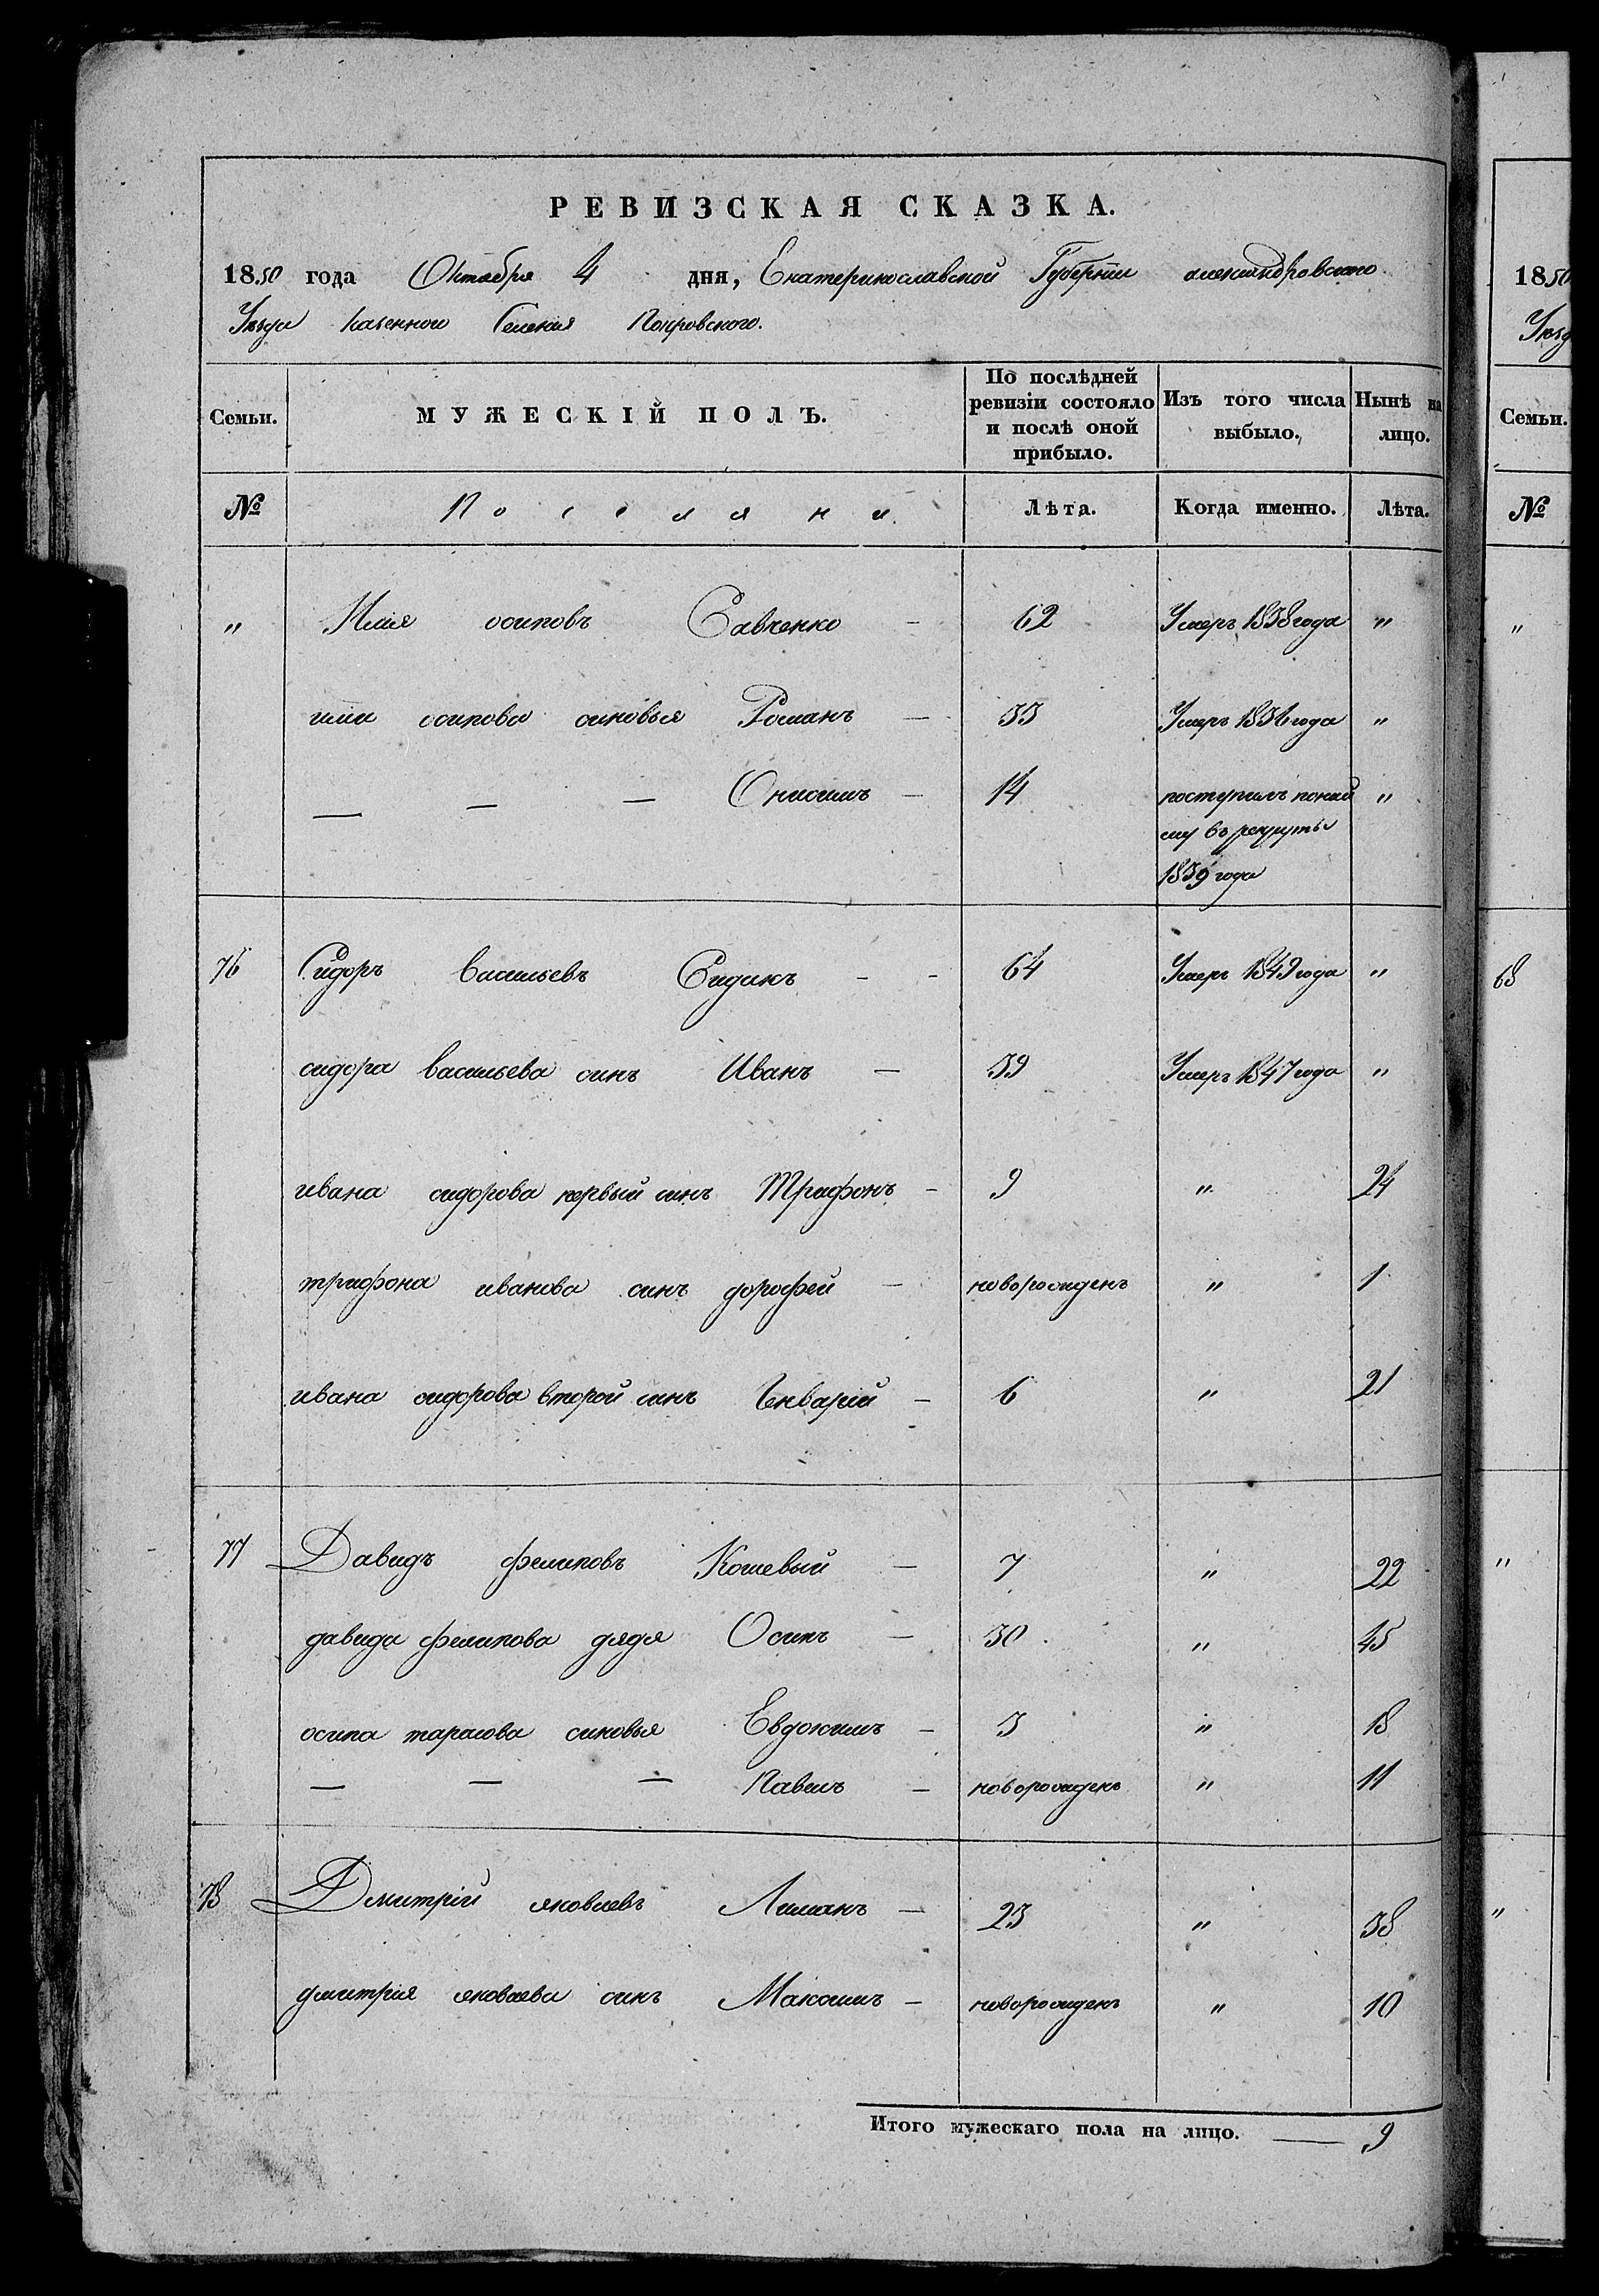 РЕВИЗСКАЯ СКАЗКА.
1850 года Октября 4 дня, Екатеринославской Губернии александровского
Уезда казенного Селения Покровского.
Семьи. МУЖЕСКІЙ ПОЛЪ. По послѣдней ревизіи состояло и послѣ оной прибыло. Изъ того числа выбыло. Нынѣ на лицо.
№ Поселяни Лѣта. Когда именно. Лѣта.
" Илия осиповъ Савченко – 62 Умеръ 1838 года "
илии осипова синовья Романъ – 33 Умеръ 1836 года "
— — — Онисимъ – 14 "
въ рекруты
1839 года
76 Сидоръ васильевъ Сидикъ - - 64 Умеръ 1849 года "
сидора васильева синъ Иванъ – 39 Умеръ 1847 года "
ивана сидорова первый синъ Трифонъ – 9 " 24
трифона иванова синъ дорофей – новорожденъ " 1
ивана сидорова второй синъ – 6 " 21
77 Давидъ филиповъ Кошевый – 7 " 22
давида филипова дядя Осипъ – 30 " 45
осипа тарасова синовья Евдокимъ – 3 " 18
— — — Павелъ – новорожденъ " 11
78 Дмитрій яковлевъ Лиманъ – 23 " 38
дмитрія яковлева синъ Максимъ – новорожденъ " 10
Итого мужескаго пола на лицо. — 9
1850
Уезд
Семьи.
№
"
68
"
"